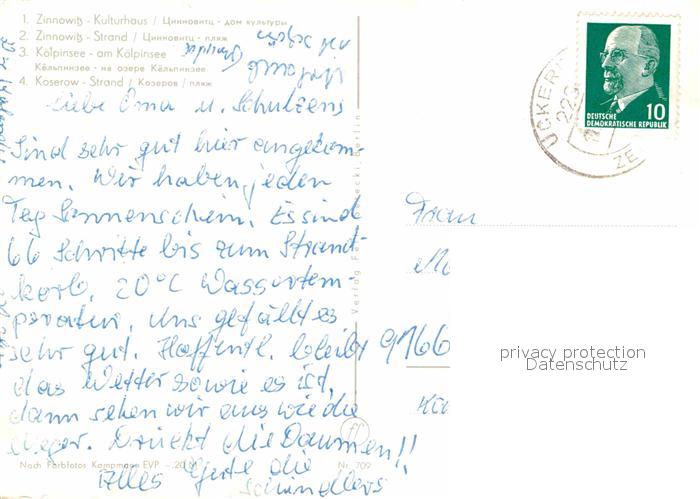 1. Zinnowitz - Kulturhaus / Цинновитц - дом культуры
2. Zinnowitz - Strand / Цинновитц - пляж
3. Kölpinsee - am Kölpinsee
Кёльпинзее - на озере Кёльпинзее
4. Koserow - Strand / Козеров / пляж
Liebe Oma u. Schulzens
Sind sehr gut hier angekom-
men. Wir haben jeden
Tag Sonnenschein. Es sind
66 Schritte bis zum Strand-
korb. 20°C Wassertem-
peratur. Uns gefällt es
sehr gut. Hoffentl. bleibt
das Wetter so wie es ist,
dann sehen wir aus wie die
Neger. Drückt die Daumen!!
Alles Gute die
Schindlers
Nach Farbfotos Kampmann EVP - .20 M
Nr. 709
Verlag Berlin
UCKERI
222
ZE
10
DEUTSCHE
DEMOKRATISCHE REPUBLIK
Frau
9166
privacy protection
Datenschutz